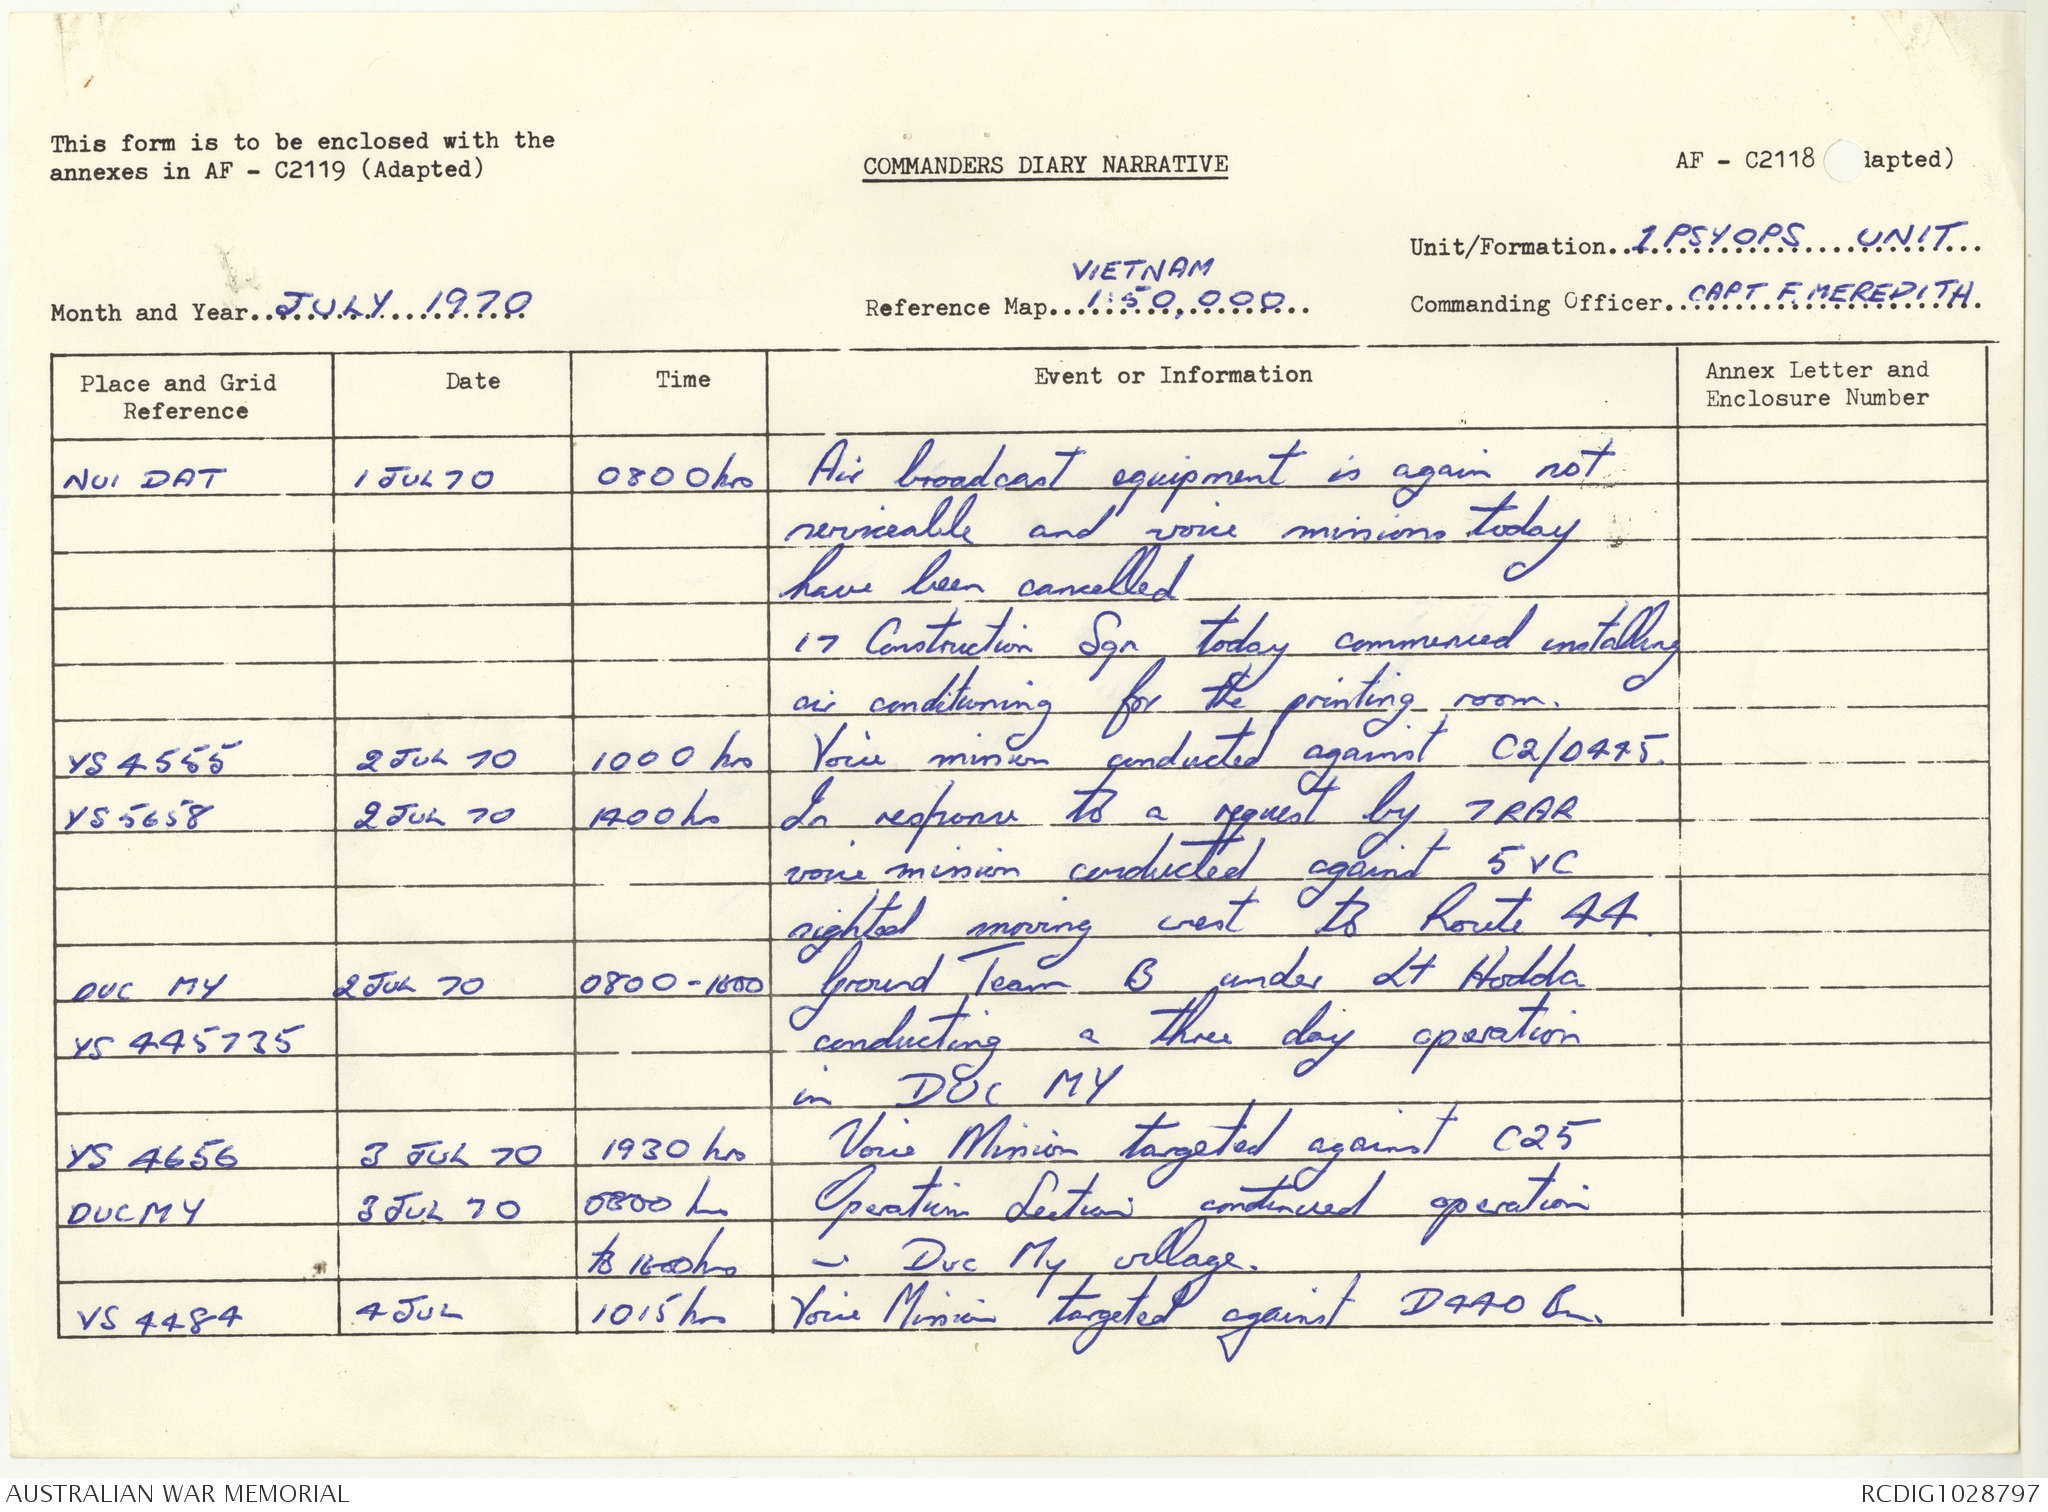 This form is to be enclosed with the
annexes in AF - C2119 (Adapted)
COMMANDERS DIARY NARRATIVE
AF - C2118 dapted)
Unit/Formation..1 PSYOPS UNIT
Month and Year..JULY 1970
VIETNAM
Reference Map...1:50,000
Commanding Officer..CAPT F. MEREDITH
Place and Grid Reference Date Time Event or Information Annex Letter and Enclosure Number
NUI DAT 1 JUL 70 0800hrs Air broadcast equipment is again not
serviceable and voice missions today
have been cancelled
17 Construction Sqn today commenced installing
air conditioning for the printing room.
YS 4555 2 JUL 70 1000 hrs Voice mission conducted against C2/D445.
YS 5658 2 JUL 70 1400 hrs In response to a request by 7 RAR
voice mission conducted against 5 VC
sighted moving west to Route 44.
DUC MY 2 JUL 70 0800-1600 Ground Team B under Lt Hodda
YS 445735 conducting a three day operation
in DUC MY
YS 4656 3 JUL 70 1930 hrs Voice Mission targeted against C25
DUC MY 3 JUL 70 0800 hrs Operation Section continued operation
to 1600hrs in Duc My village.
YS 4484 4 JUL 1015 hrs Voice Mission targeted against D440 Bn.
AUSTRALIAN WAR MEMORIAL
RCDIG1028797